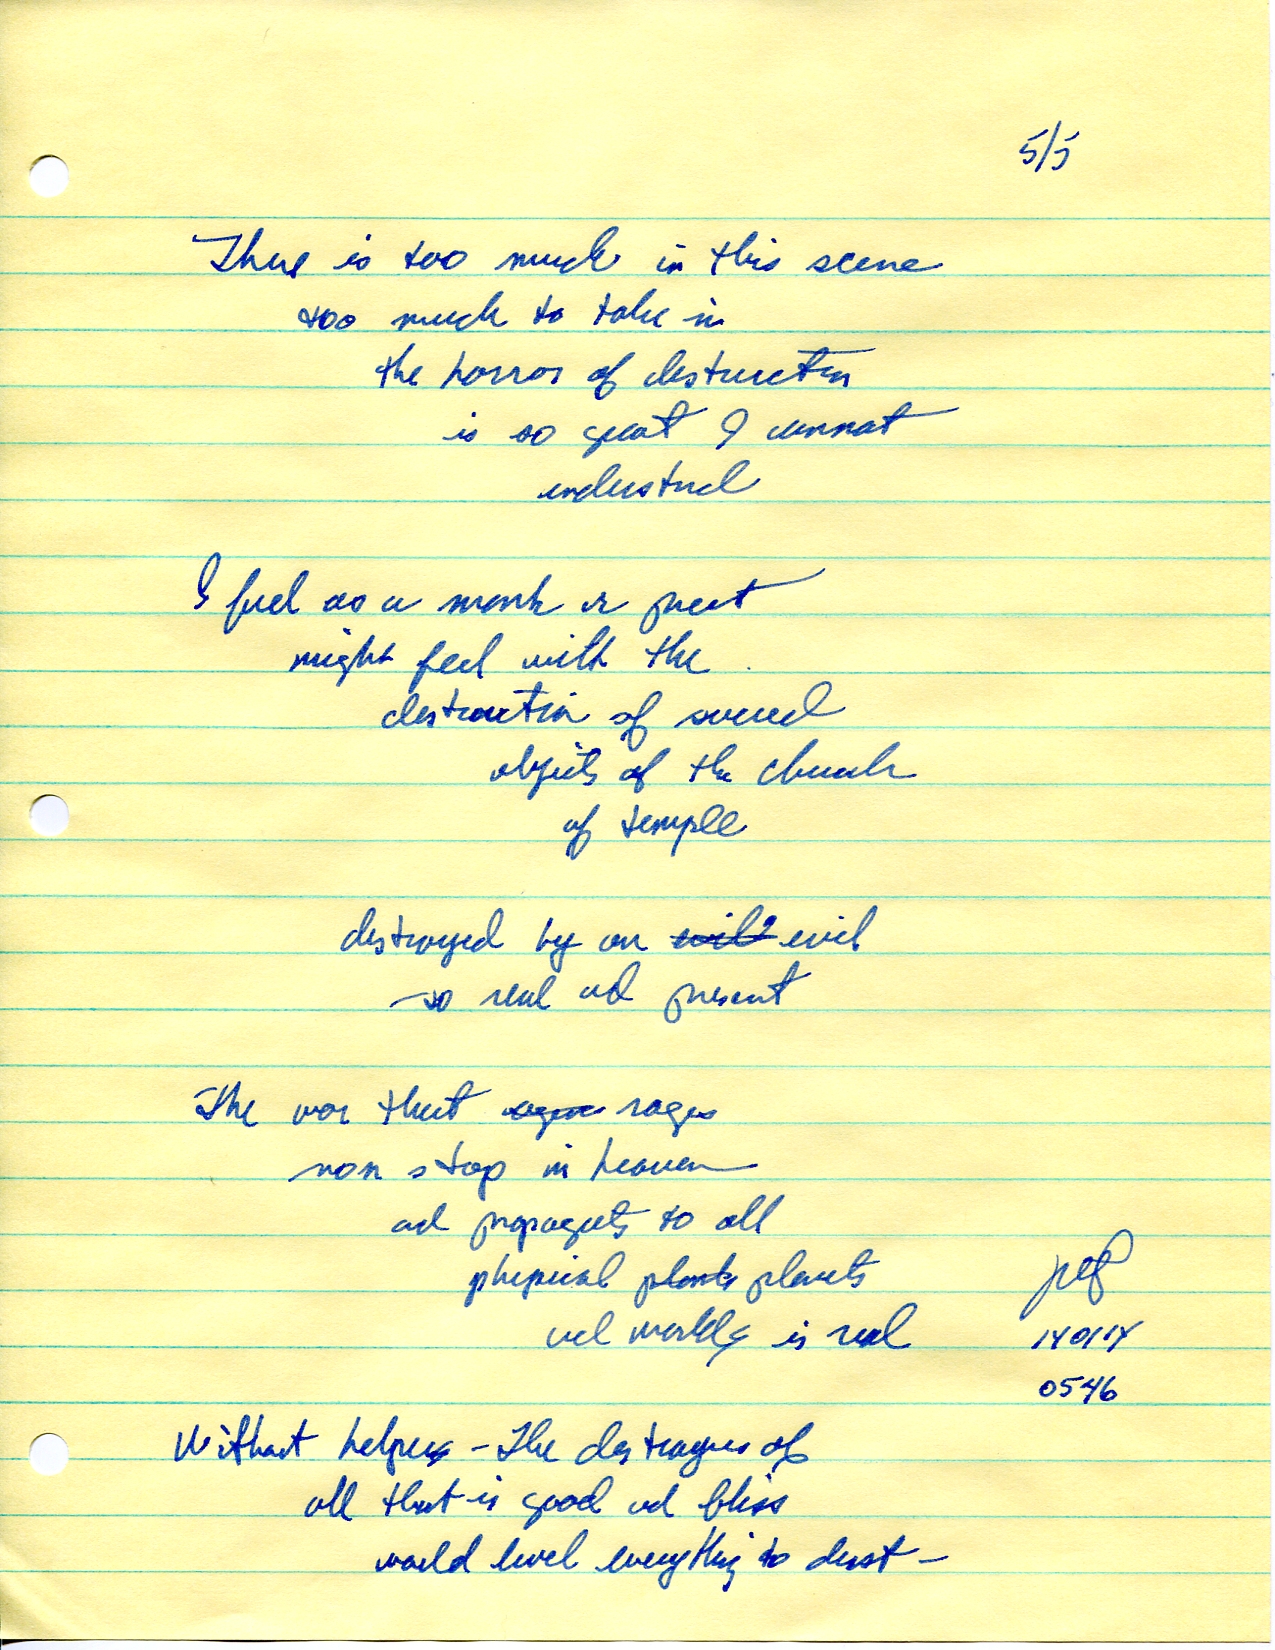 5/5
There is too much in this scene
too much to take in
the horror of destruction
is so great I cannot
understand
I feel as a monk or priest
might feel with the
destruction of sacred
objects of the church
of temple
destroyed by an evil evil
so real ad present
The war that rages
non stop in heaven
ad propagates to all
physical plants planets
ad worlds is real
140114
0546
Without helpers - The destroyers of
all that is good ad bliss
would level everything to dust -